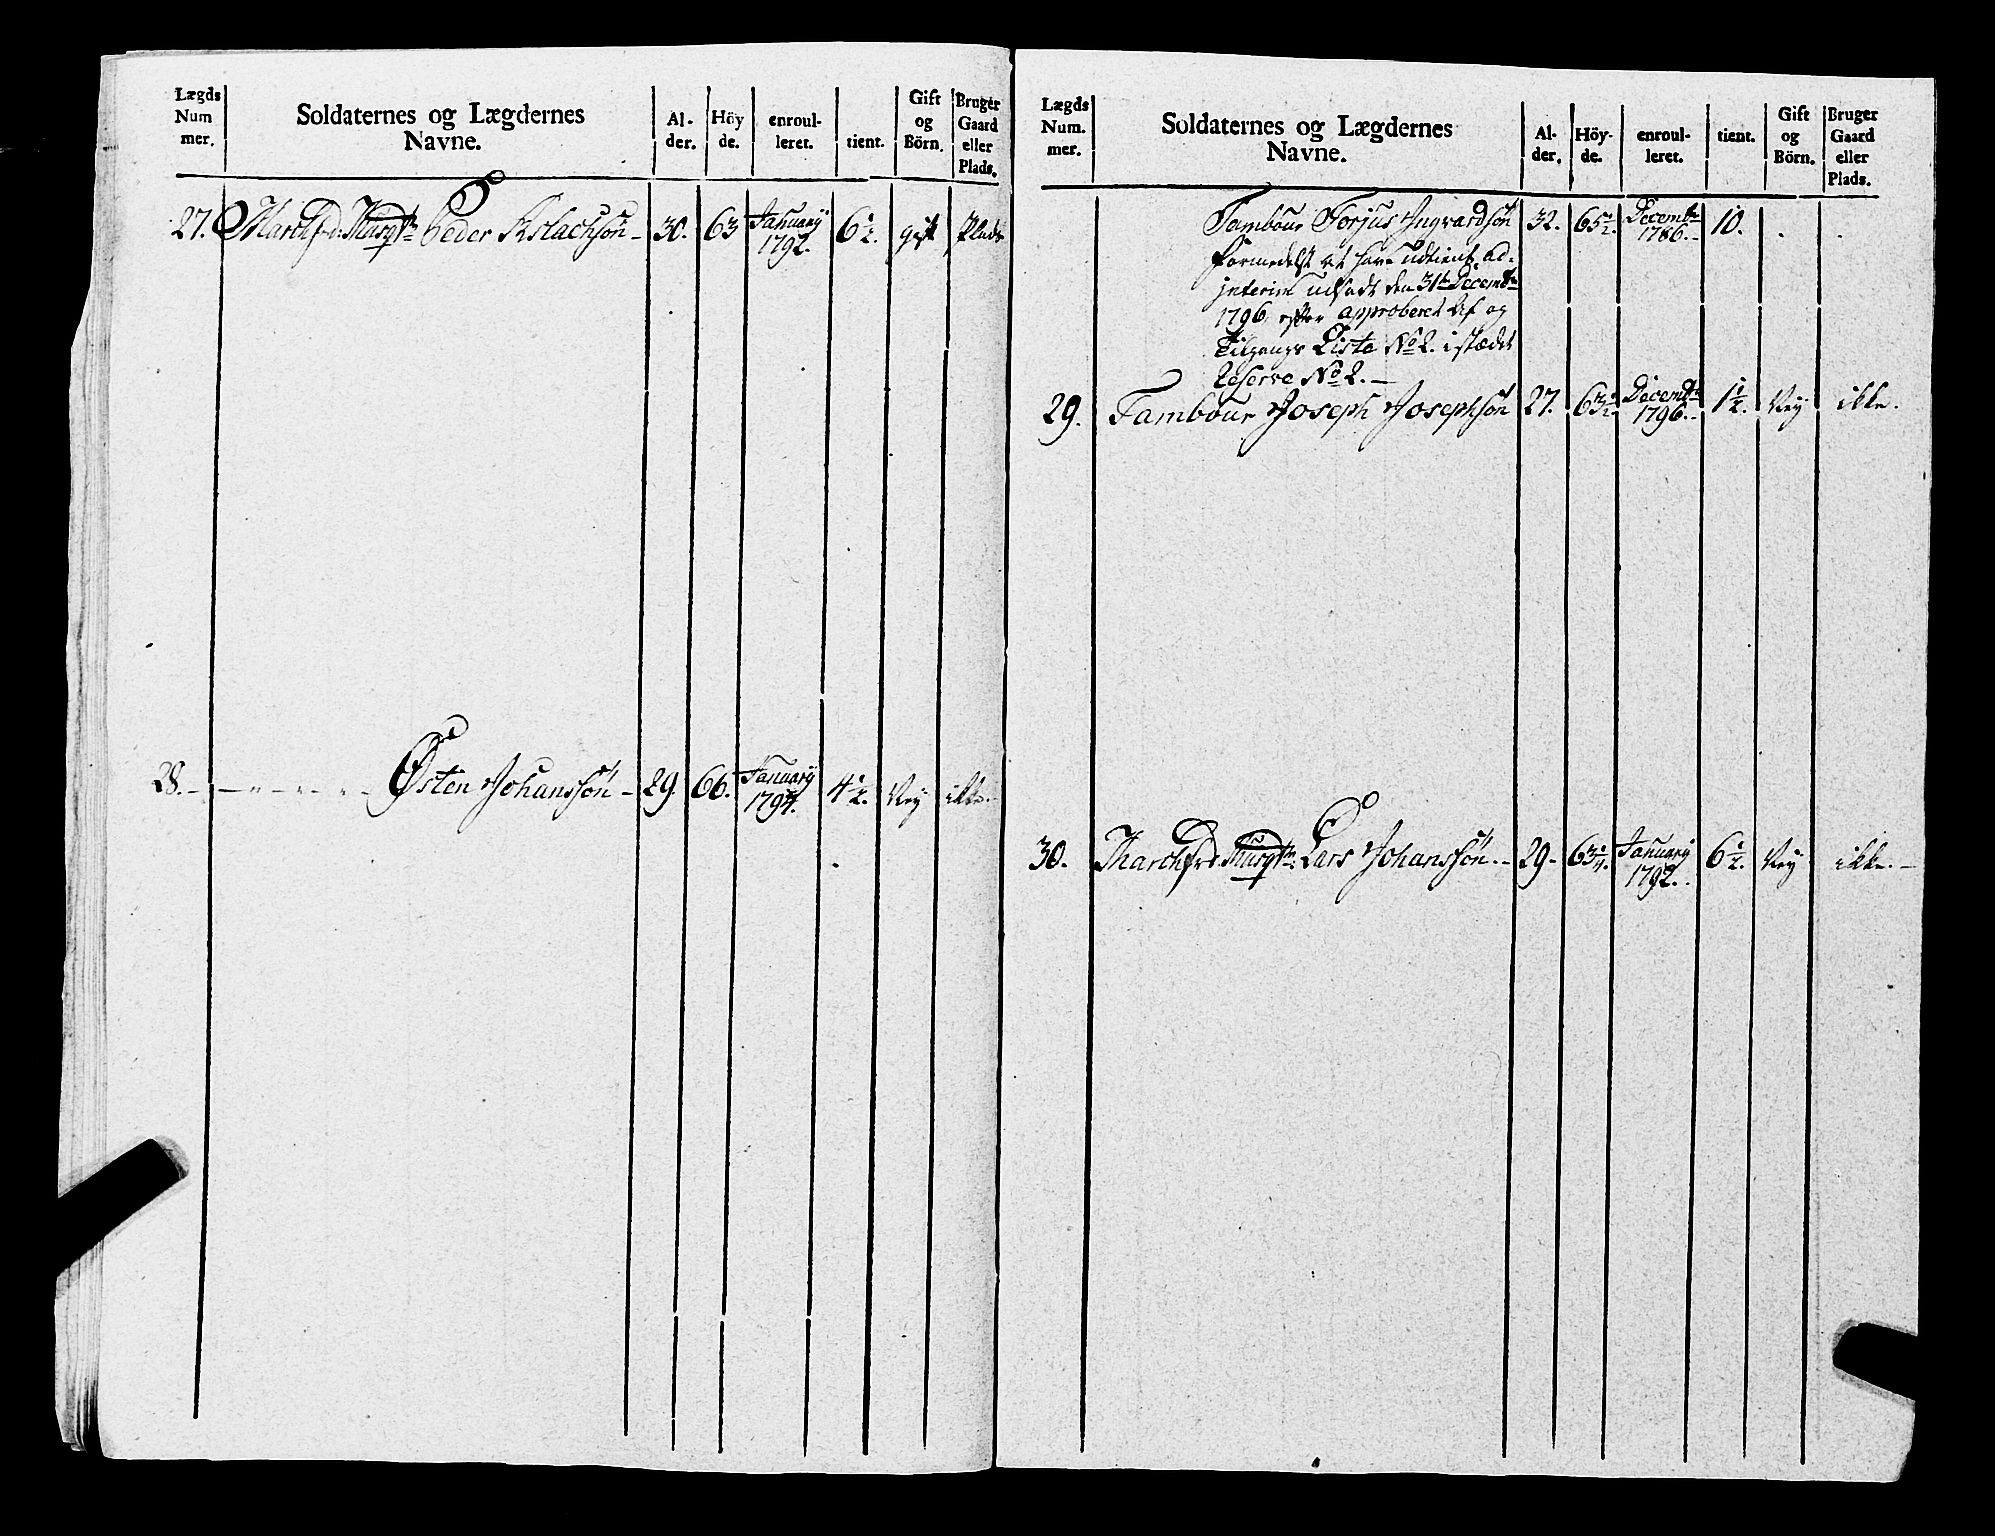 Lægds Num mer. | Soldaternes og Lægdernes Navne. | Al- der. | Höy de. | enroul- leret. | tient. | Gift og Börn. | Bruger Gaard eller Plads.
27. Marchfrd: Musqtr Peder Aslachsön – 30. 63 January 1792. 6½. gift Plads
28. – – „ – „ – „ – Østen Johanssön – 29. 66. January 1794. 4½. Ney ikke. –
Lægds Num. mer. | Soldaternes og Lægdernes Navne. | Al- der. | Höy- de. | enroul- leret. | tient. | Gift og Börn. | Bruger Gaard eller Plads.
Tambour Torjus Ingvardsön 32. 65½. Decembr 1786. – 10. . .
formedelst at have udtient ad-
interim udsadt den 31te Decembr
1796 efter approberet Af og
Tilgangs Liste No 2. i stædet
Reserve No 2. –
29. Tambour Joseph Josephsön 27. 63½. Decembr 1796. – 1½. Ney ikke.
30. Marchfrd Musqtr: Lars Johanssön. – 29 – 63¼. January 1792. 6½. Ney ikke. –